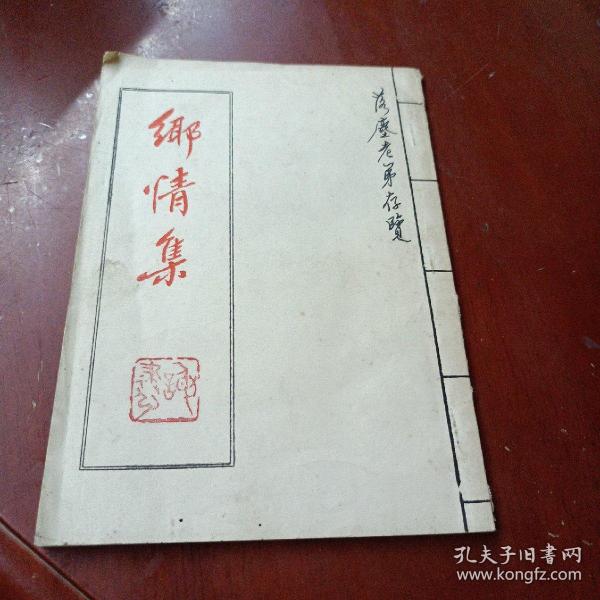 落塵老弟存覽
鄉情集
孔夫子旧书网
www.kongfz.com